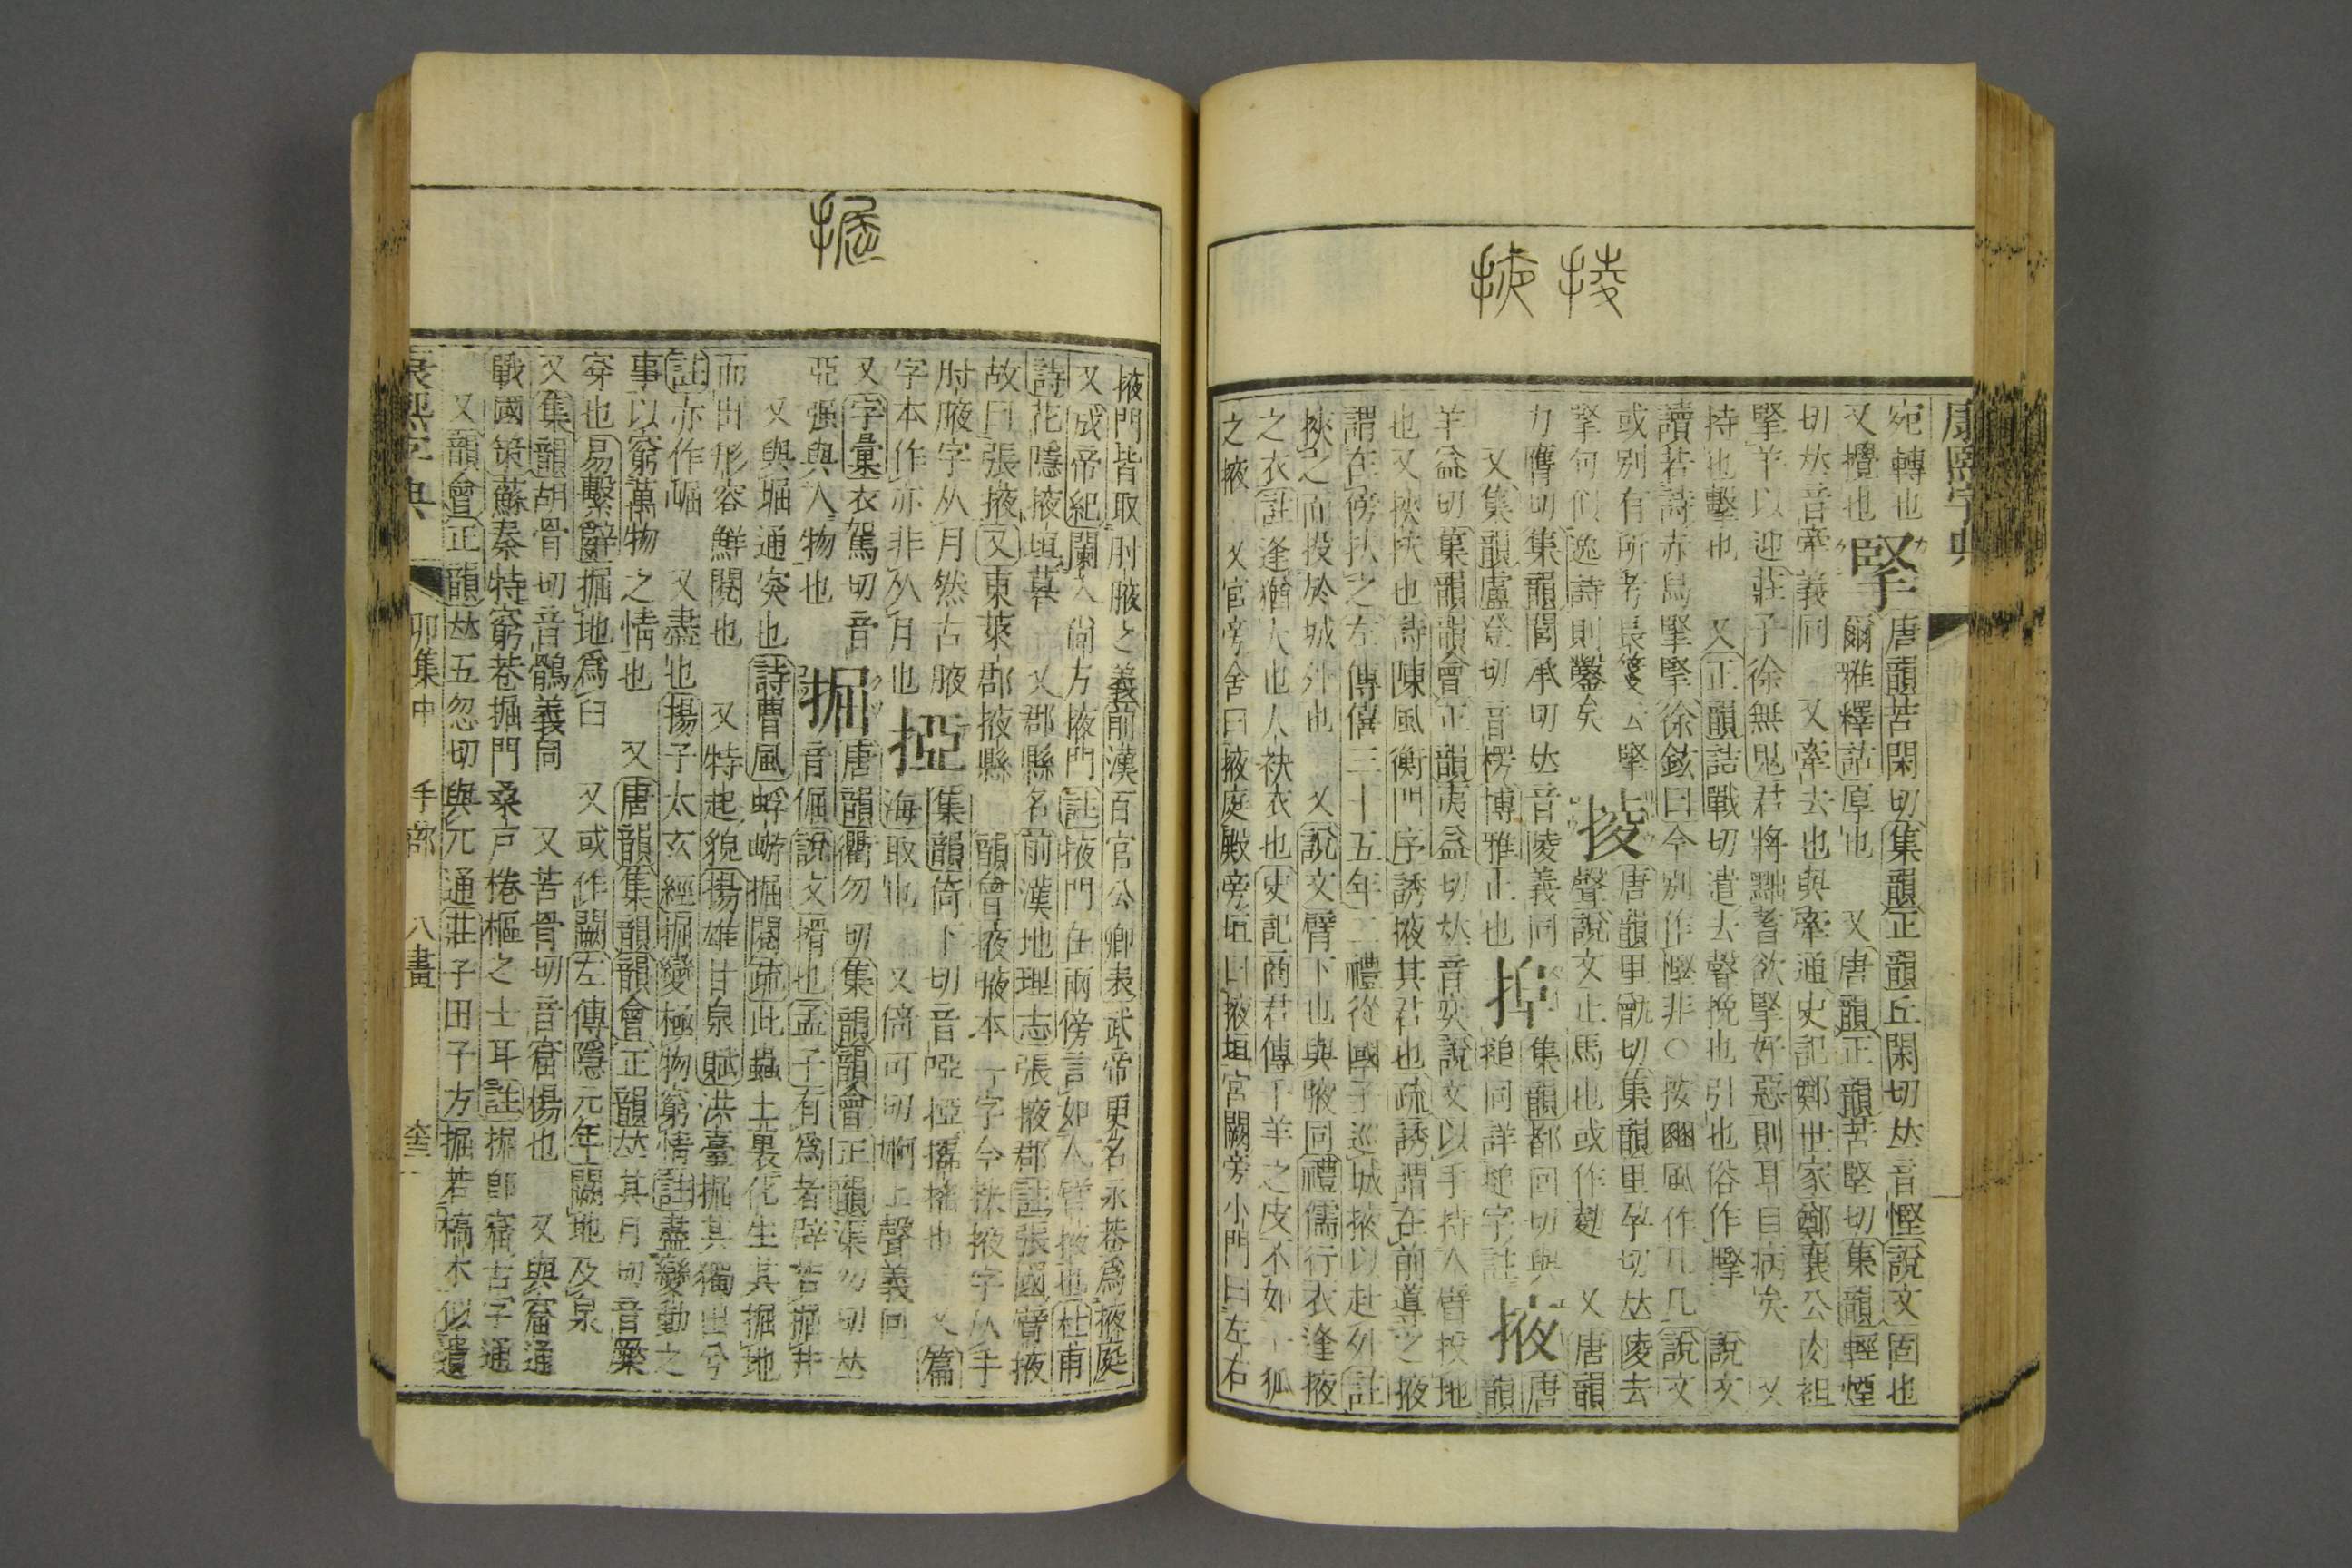 康熙字典
掕掖
宛轉也
又攪也
掔
唐韻苦閑切集韻正韻丘閑切𠀤音慳說文固也
爾雅釋詁厚也 又唐韻正韻苦堅切集韻輕煙
切𠀤音牽義同 又牽去也與牽通史記鄭世家鄭襄公肉袒
掔羊以迎莊子徐無鬼君將黜耆欲掔好惡則耳目病矣 又
持也擊也 又正韻詰戰切遣去聲挽也引也俗作㩃 說文
讀若詩赤舄掔掔徐鉉曰今別作慳非○按豳風作几几說文
或別有所考長箋云掔
掔何似逸詩則鑿矣
掕
唐韻里甑切集韻里孕切𠀤陵去
聲說文止馬也或作䔖 又唐韻
力膺切集韻閭承切𠀤音陵義同
又集韻盧登切音楞博雅止也
掽
集韻都回切與
搥同詳㩾字註
掖
唐韻
羊益切集韻韻會正韻夷益切𠀤音奕說文以手持人臂投地
也又挾扶也詩陳風衡門序誘掖其君也疏誘謂在前導之掖
謂在傍扶之左傳僖二十五年二禮從國子巡城掖以赴外註
挾之而投於城外也 又說文臂下也與腋同禮儒行衣逢掖
之衣註逢猶大也大袂衣也史記商君傳千羊之皮不如一狐
之掖 又宮旁舍曰掖庭殿旁垣曰掖垣宮闕旁小門曰左右
掘
掖門皆取肘腋之義前漢百官公卿表武帝更名永巷爲掖庭
又成帝紀闌入尙方掖門註掖門在兩傍言如人臂掖也杜甫
詩花隱掖垣暮 又郡縣名前漢地理志張掖郡註張國臂掖
故曰張掖又東萊郡掖縣 韻會掖腋本一字今扶掖字从手
肘腋字从月然古腋
字本作亦非从月也
掗
集韻倚下切音啞掗㩡搖也 又篇
海取也 又倚可切婀上聲義同
又字彙衣駕切音
亞强與人物也
掘
唐韻衢勿切集韻韻會正韻渠勿切𠀤
音倔說文搰也孟子有爲者辟若掘井
又與堀通突也詩曹風蜉蝣掘閱疏此蟲土裏化生其掘地
而出形容鮮閱也 又特起貌揚雄甘泉賦洪臺掘其獨出兮
註亦作崛 又盡也揚子太玄經掘變極物窮情註盡變動之
事以窮萬物之情也 又唐韻集韻韻會正韻𠀤其月切音橜
穿也易繫辭掘地爲臼 又或作闕左傳隱元年闕地及泉
又集韻胡骨切音鶻義同 又苦骨切音窟揚也 又與窟通
戰國策蘇秦特窮巷掘門桑戸棬樞之士耳註掘卽窟古字通
又韻會正韻𠀤五忽切與兀通莊子田子方掘若槁木似遺
康熙字典 卯集中 手部 八畫